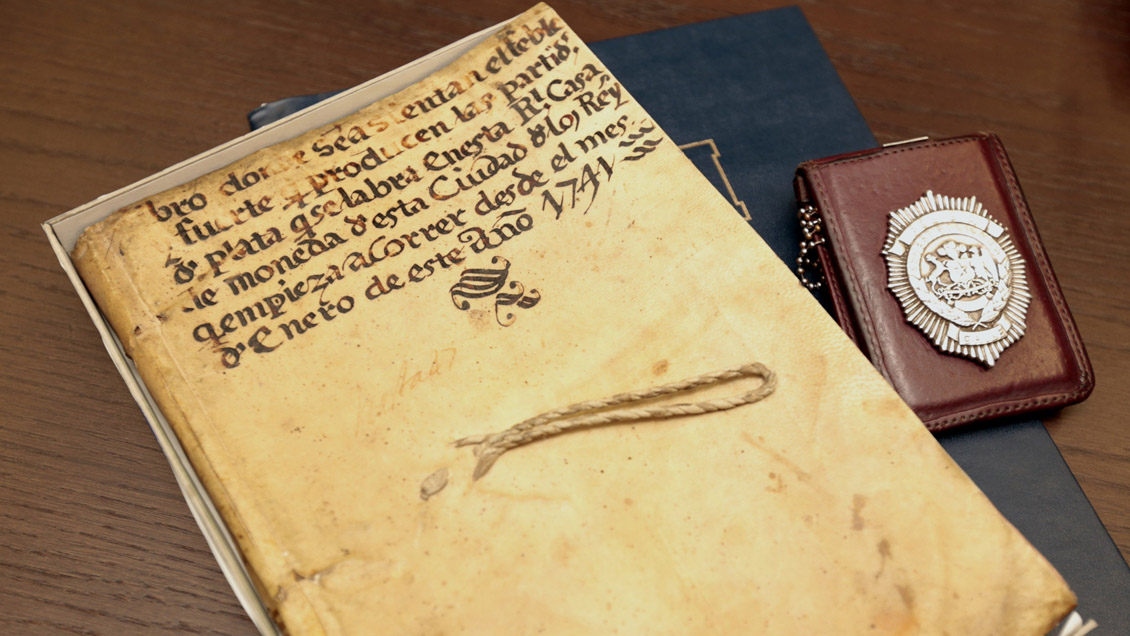 bro donde se asientan el feble
fuerte q. producen las partids.
ds. plata q se labra en esta Rl. Casa
de moneda ds esta Ciudad ds los Reys
q empieza a Correr desde el mes
ds. Enero de este Año 1741